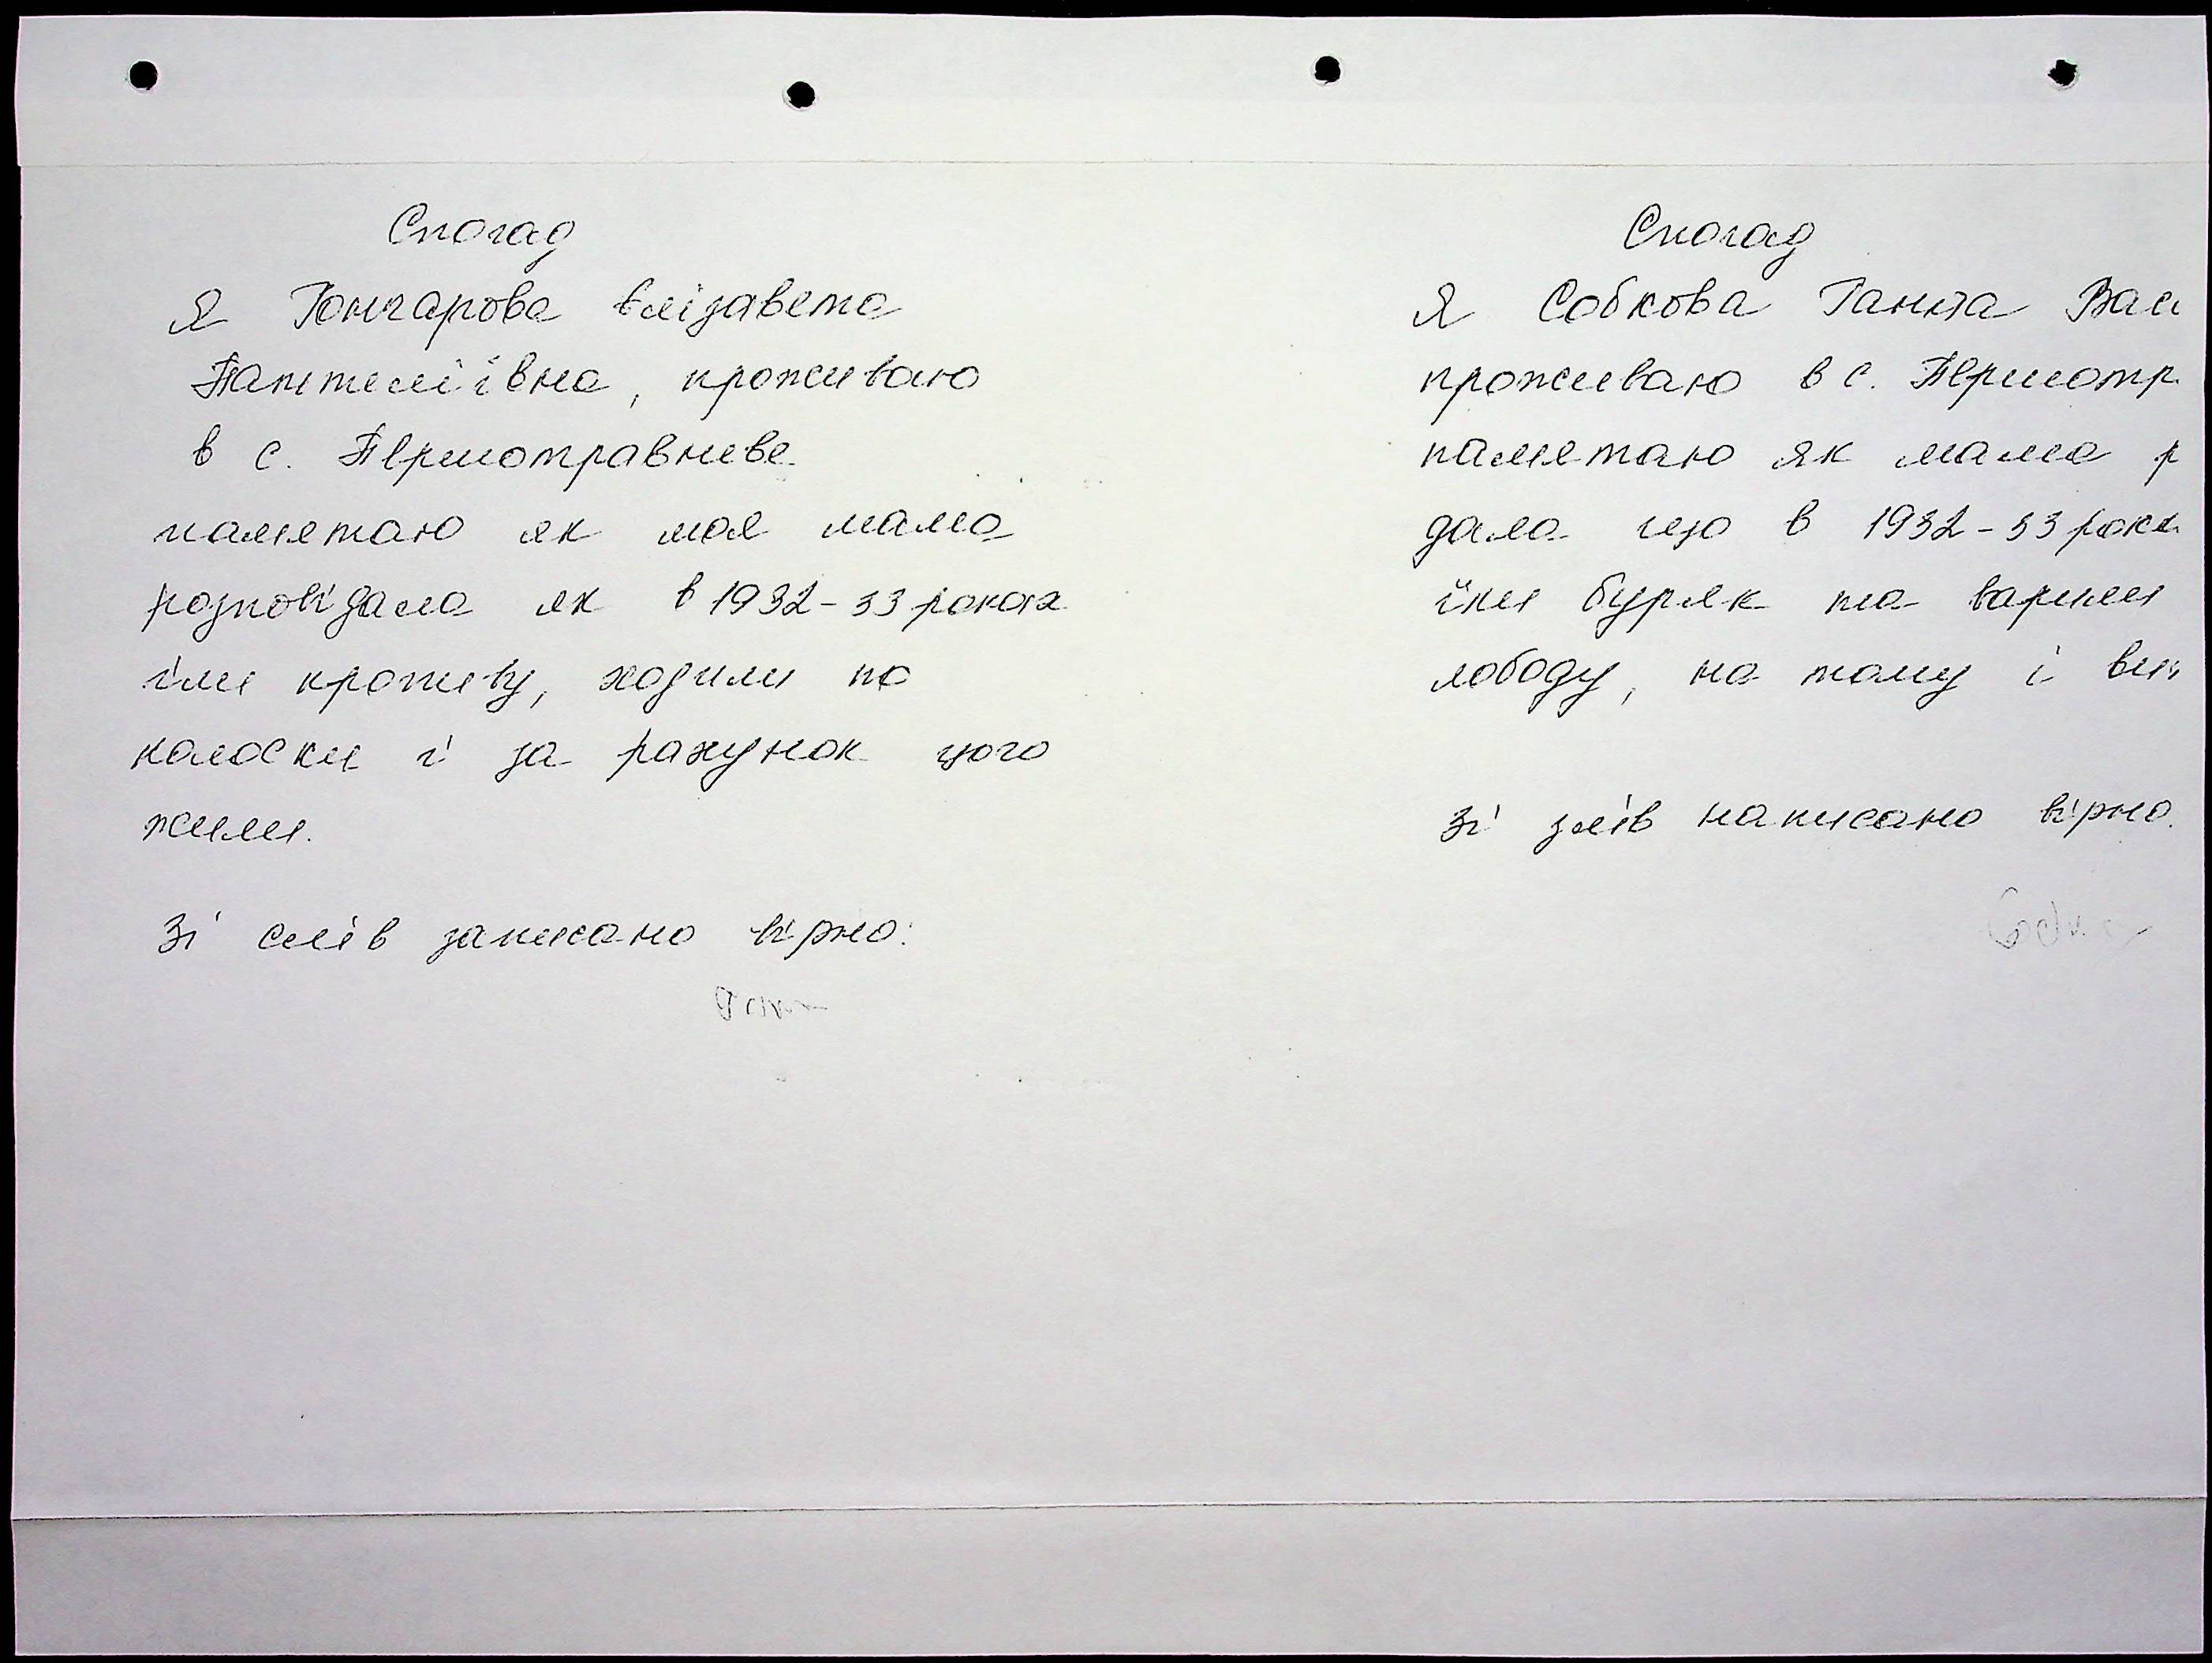 Спогад
Я Гончарова Єлізавета
Пантеліївна, проживаю
в с. Першотравневе.
памятаю як моя мама
розповідала як в 1932-33 роках
їли кропиву, ходили по
колоски і за рахунок цього
жили.
Зі слів записано вірно:
Спогад
Я Собкова Ганна Васи
проживаю в с. Першотр
памятаю як мама р
дала що в 1932-33 роки
їли буряк та варили
лободу, на тому і ви
Зі слів написано вірно.